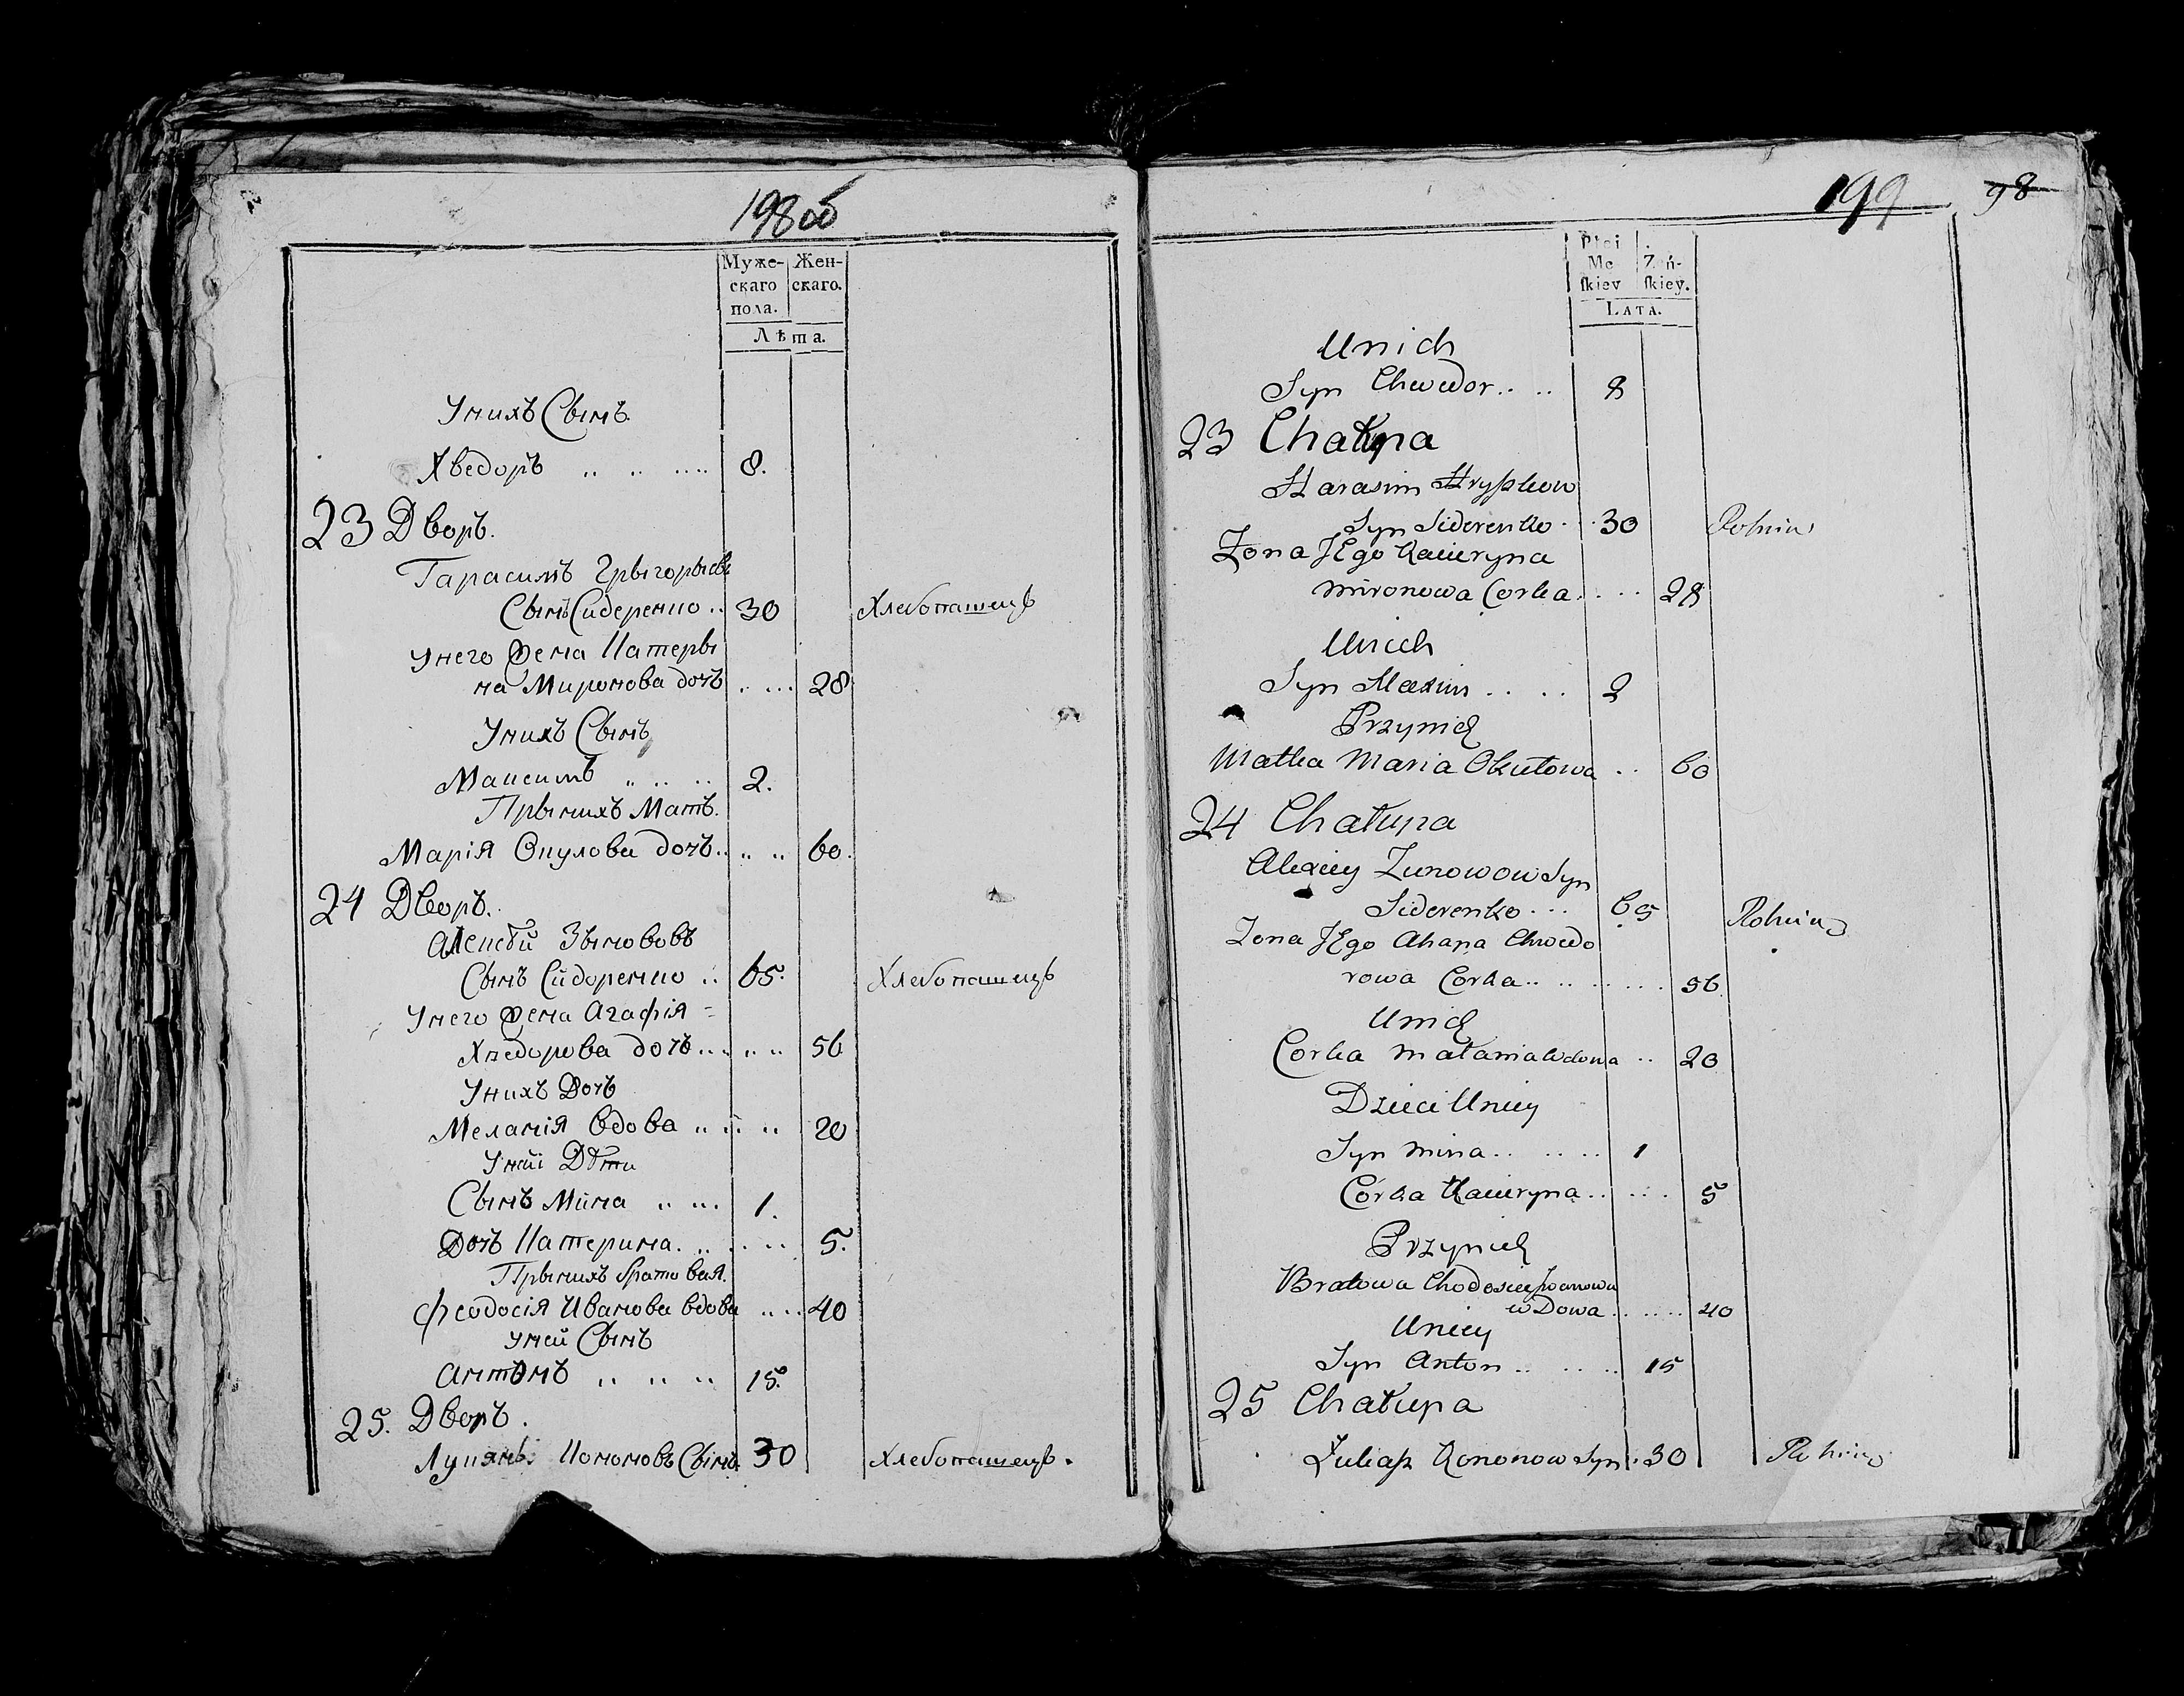 198об
Муже- Жен-
скаго скаго.
пола.
Лѣта.
Унихъ Сынъ
Хведоръ 8.
23 Дворъ.
Гарасимъ Грыгорьевъ
Сынъ Сидеренко 30 Хлебопашецъ
Унего Жена Катеры
на Миронова дочь 28
Унихъ Сынъ
Максимъ 2.
Прынихъ Мать.
Марія Окулова дочь 60.
24 Дворъ.
Алексѣй Зынововъ
Сынъ Сидоренко 65. Хлебопашецъ
Унего Жена Агафія
Хведорова дочь 56
Унихъ Дочь
Меланія вдова 20
Уней Дѣти
Сынъ Мина 1.
Дочь Катерина 5.
Прынихъ братовая.
Феодосія Иванова вдова 40
Уней Сынъ
Антонъ 15.
25. Дворъ.
Лукянъ Кононовъ Сынъ 30 Хлебопашецъ.
199 98
Płci
Mę Żeń-
skiey skiey.
LATA.
Unich
Syn Chwedor 8
23 Chałupa
Harasim Hryszkow
Syn Siderenko 30 Rolnik
Zona JEgo Kateryna
Mironowa Corka 28
Unich
Syn Maxim 2
Przynich
Matka Maria Okulowa 60
24 Chałupa
Alexiey Zunowow Syn
Siderenko 65 Rolnik
Zona JEgo Ahapa Chwedo
rowa Corka 56
Unich
Corka Małania wdowa 20
Dzieci Uniey
Syn Mina 1
Córka Kateryna 5
Przynich
Bratowa Chodosia Iwanowa
wDowa 40
Uniey
Syn Anton 15
25 Chałupa
Łukasz Kononow Syn 30 Rolnik